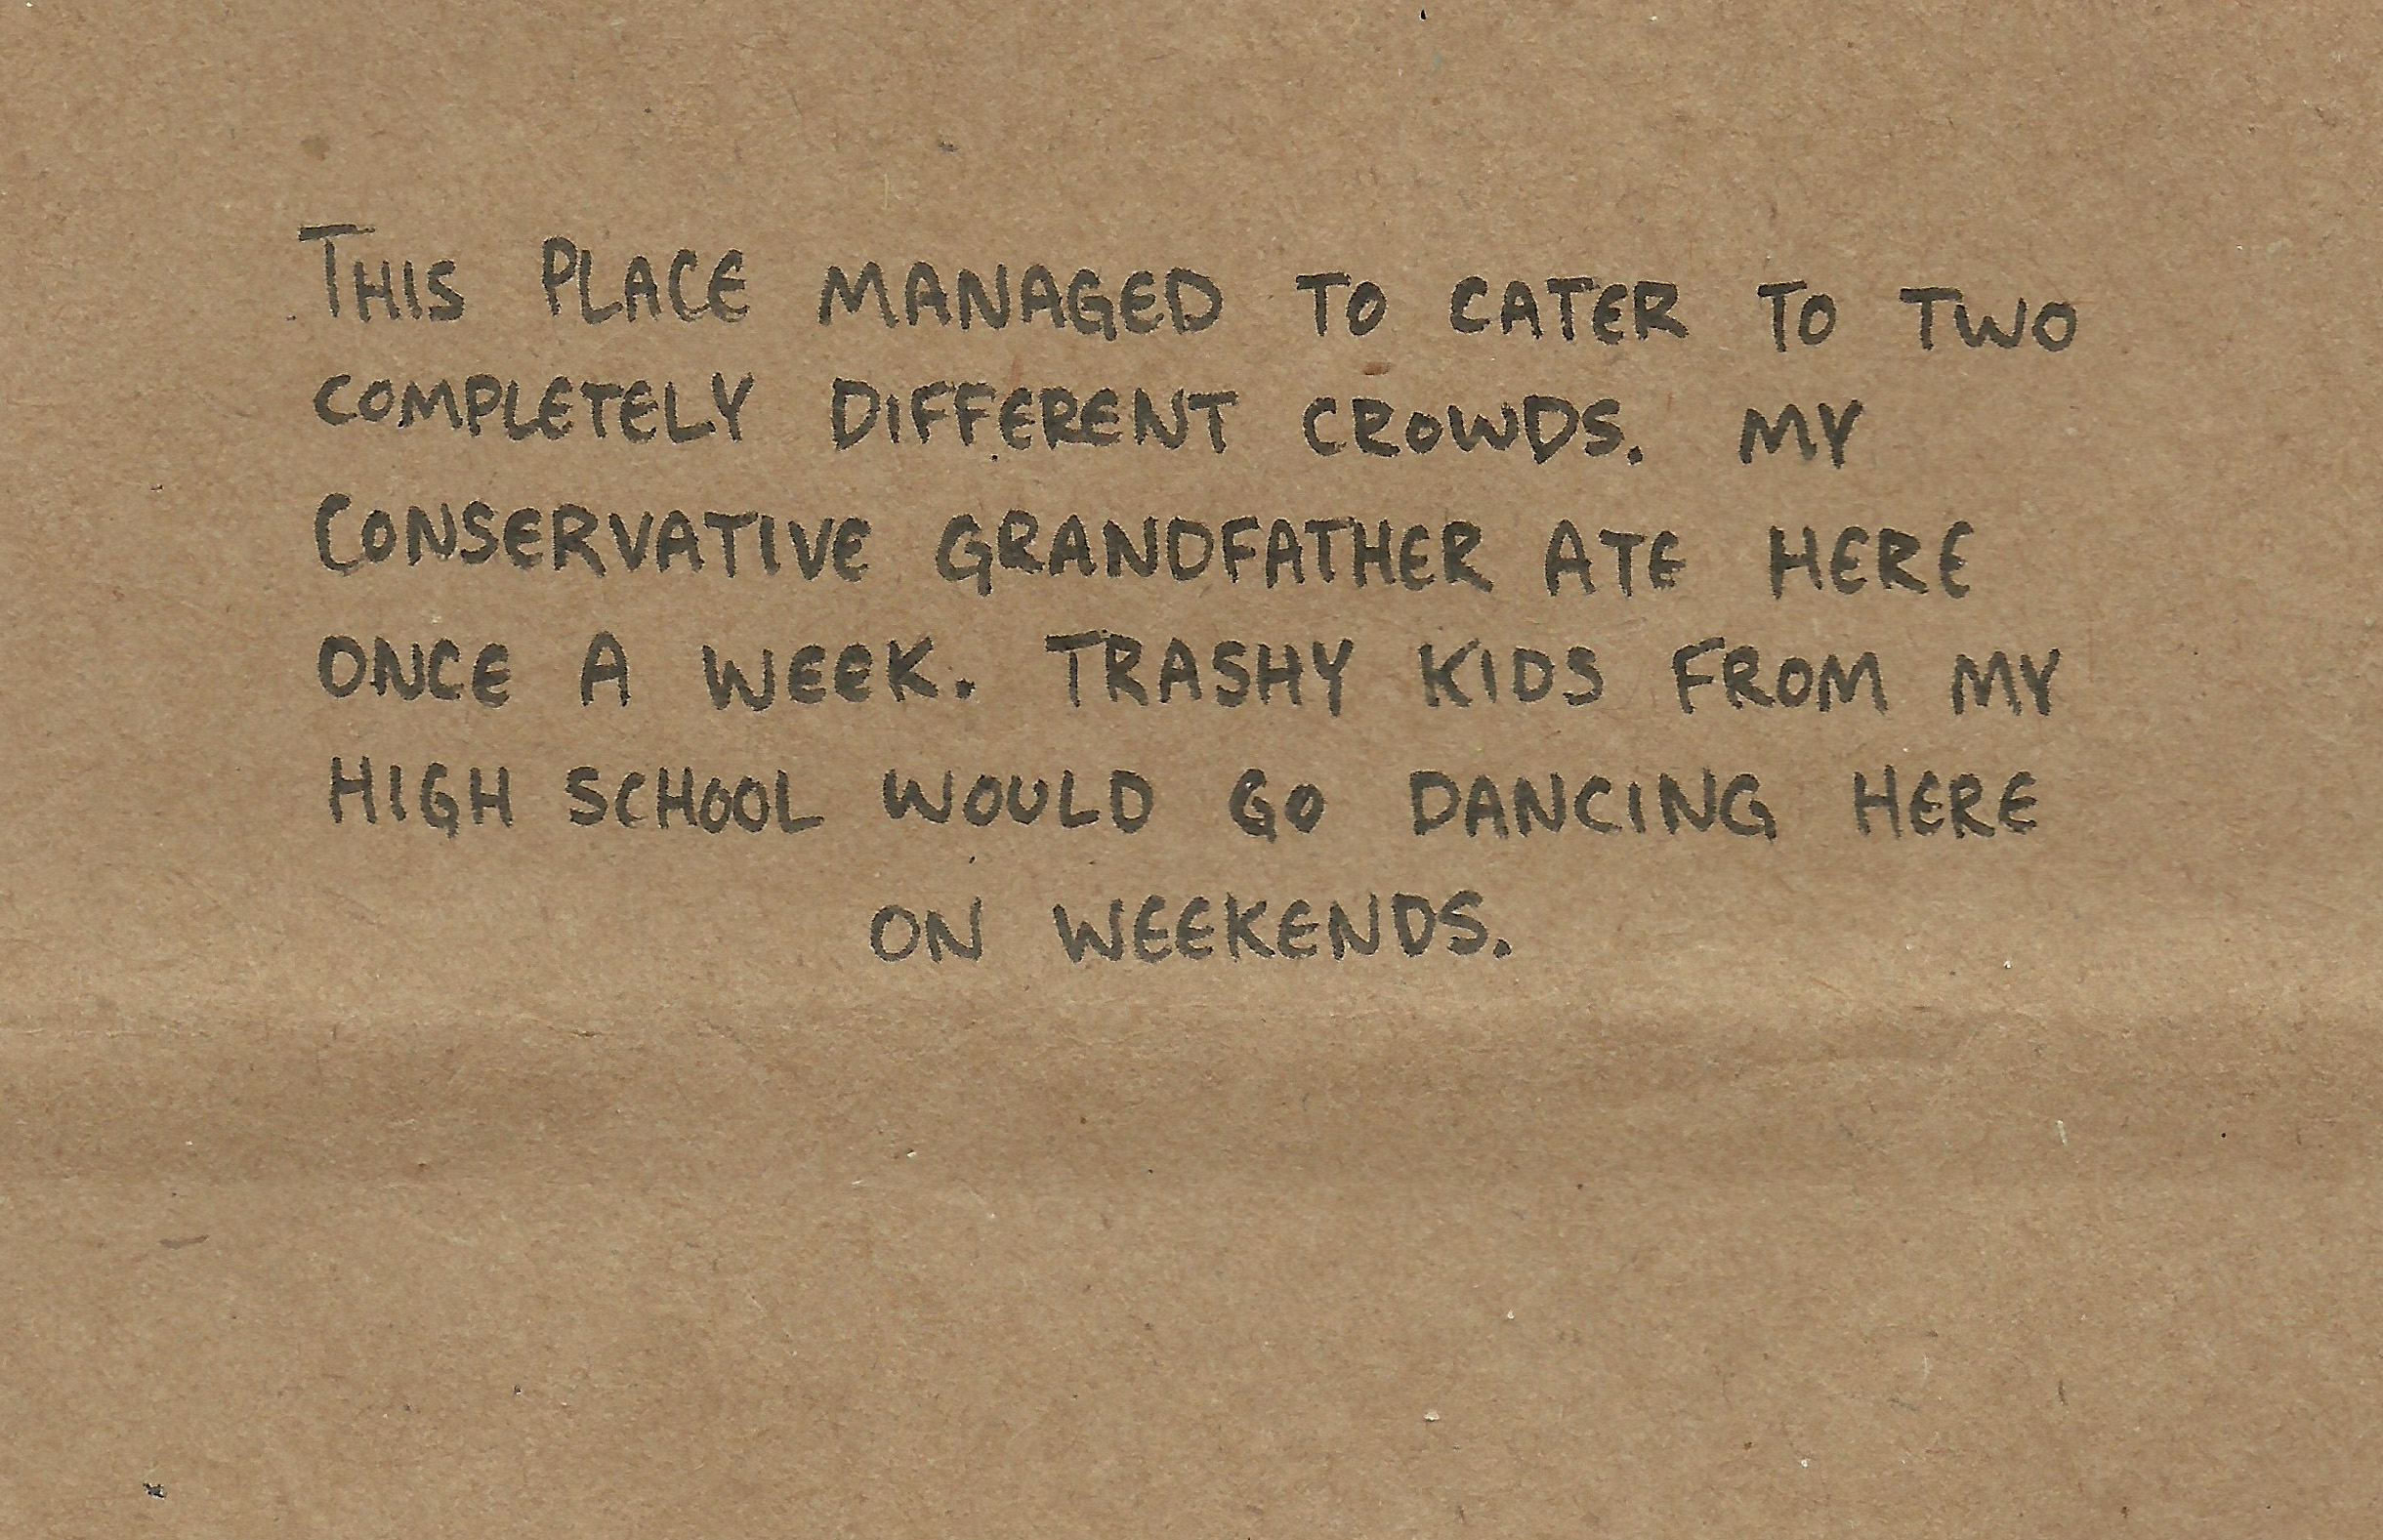 THIS PLACE MANAGED TO CATER TO TWO
COMPLETELY DIFFERENT CROWDS. MY
CONSERVATIVE GRANDFATHER ATE HERE
ONCE A WEEK. TRASHY KIDS FROM MY
HIGH SCHOOL WOULD GO DANCING HERE
ON WEEKENDS.